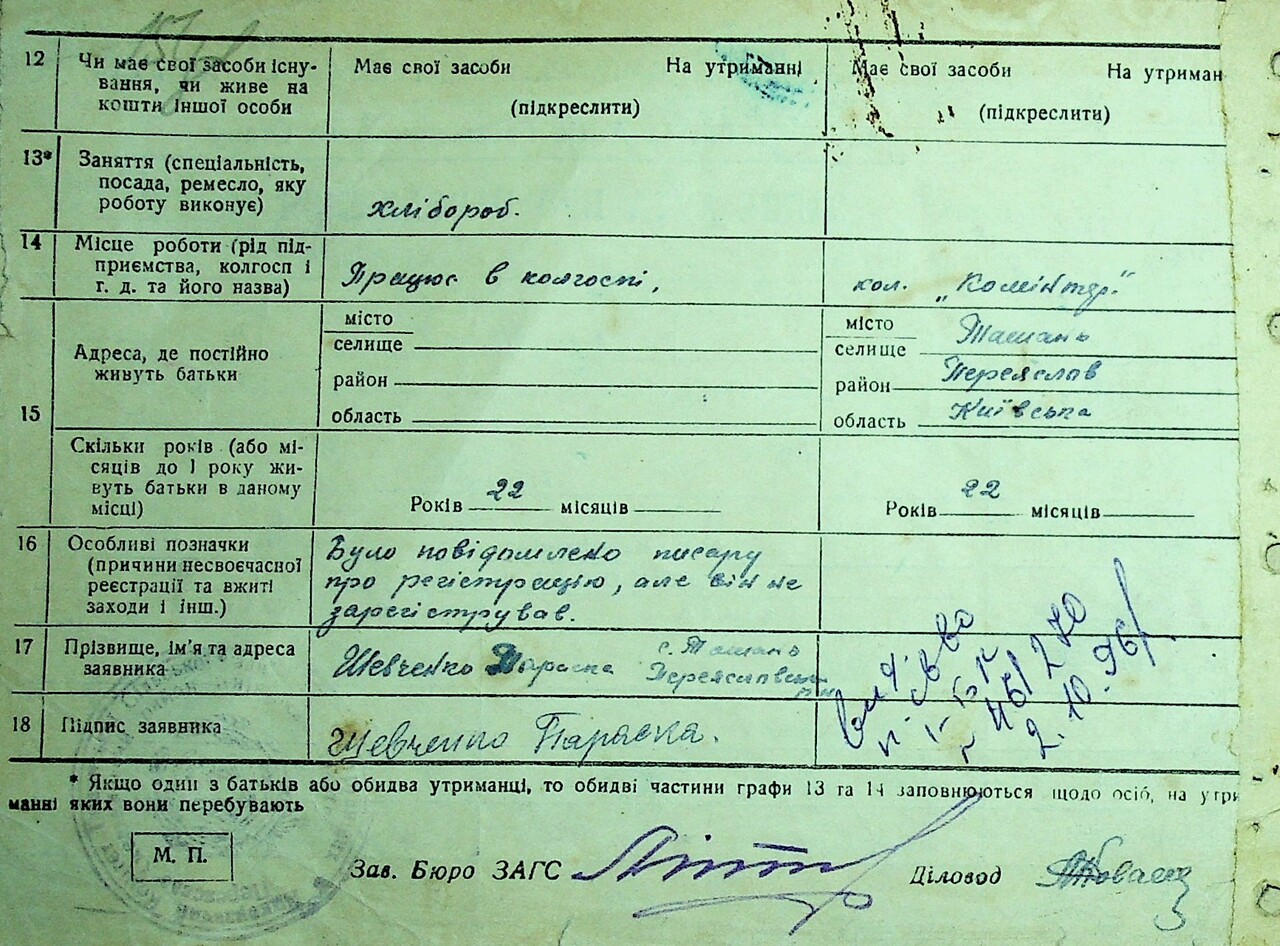 12 Чи має свої засоби існу-
вання, чи живе на
кошти іншої особи
Має свої засоби На утриманні
(підкреслити)
Має свої засоби На утриман
(підкреслити)
13* Заняття (спеціальність,
посада, ремесло, яку
роботу виконує)
хлібороб.
14 Місце роботи (рід під-
приємства, колгосп і
г. д. та його назва)
Працює в колгоспі,
кол. „Комінтер."
15
Адреса, де постійно
живуть батьки
місто
селище
район
область
місто
селище Ташань
район Переяслав
область Київська
Скільки років (або мі-
сяців до 1 року жи-
вуть батьки в даному
місці)
Років 22 місяців
Років 22 місяців
16 Особливі позначки
(причини несвоєчасної
реєстрації та вжиті
заходи і інш.)
Було повідомлено писару
про регістрацію, але він не
зарегістрував.
17 Прізвище, ім'я та адреса
заявника
Шевченко Параска с. Ташань
Переяславськ
р-н
18 Підпис заявника
Шевченко Параска.
270
2.10.96
* Якщо один з батьків або обидва утриманці, то обидві частини графи 13 та 14 заповнюються щодо осіб, на утри
манні яких вони перебувають
М. П.
Зав. Бюро ЗАГС
Діловод